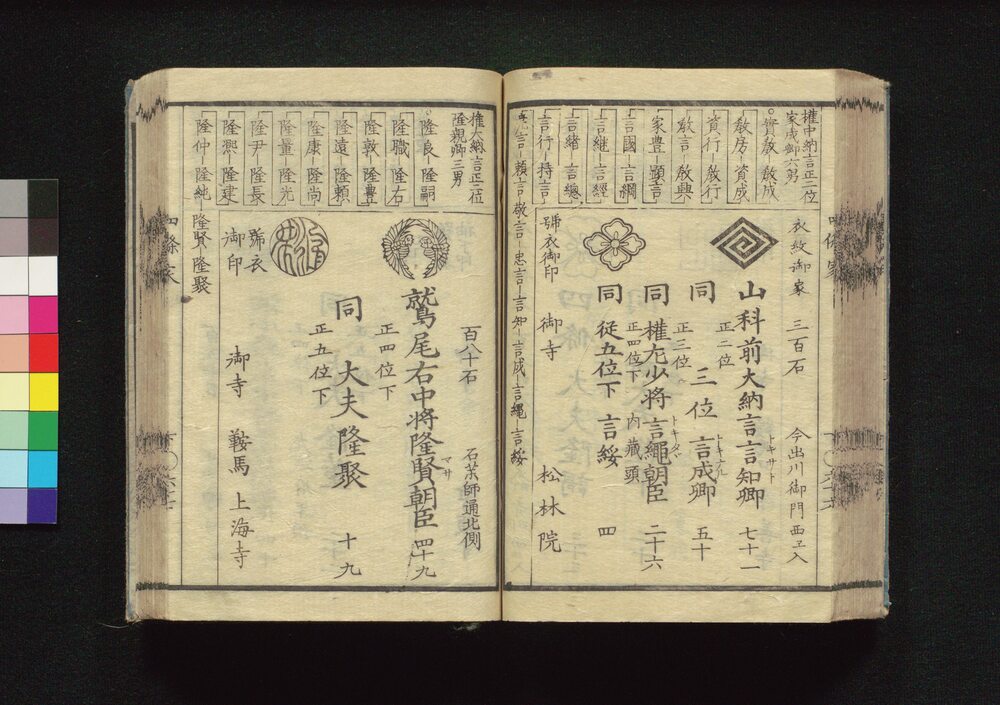 權中納言正二位
家成卿六男
實教─教成
教房─資成
資行─教行
教言─教興
家豊─顯言
言國─言綱
言継─言經
言緒 言總
言行─持言
頼言 敬言─忠言─言知─言成─言縄─言綏
衣紋御家 三百石 今出川御門西エ入
山科前大納言言知卿 七十一
トキサト
正二位
同 三位 言成卿 五十
トキナル
正三位
同 權左少將 言縄朝臣 二十六
トキナハ
正四位下 內藏頭
同 從五位下 言綏 四
號衣御印 御寺 松林院
四條家
權大納言正二位
隆親卿三男
隆良─隆嗣
隆職─隆右
隆敦─隆豊
隆遠─隆頼
隆康─隆尚
隆量─隆光
隆尹─隆長
隆凞─隆建
隆仲─隆純
隆賢─隆聚
百八十石 石茶師通北側
鷲尾右中將隆賢朝臣 四十九
マサ
正四位下
同 大夫隆聚 十九
正五位下
號衣
御印
御寺 鞍馬 上海寺
四條家